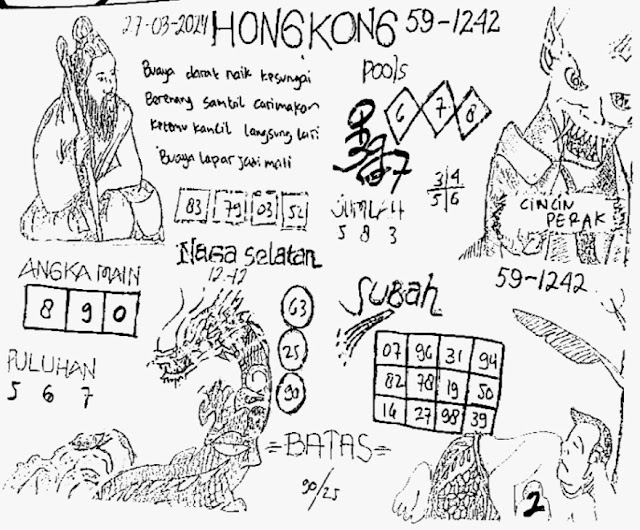 27-03-2024 HONGKONG 59-1242
Buaya darat naik kesungai
Berenang sambil carimakan
Ketemu kancil langsung lari
Buaya lapar jadi mati
83 79 03 52
Pools
6 7 8
7
3 4
5 6
JUMLAH
5 8 3
CINCIN
PERAK
Naga Selatan
12-42
ANGKA MAIN
8 9 0
PULUHAN
5 6 7
63
25
90
=BATAS=
90/25
SUBAH
59-1242
07 96 31 94
82 78 19 50
14 27 98 39
2